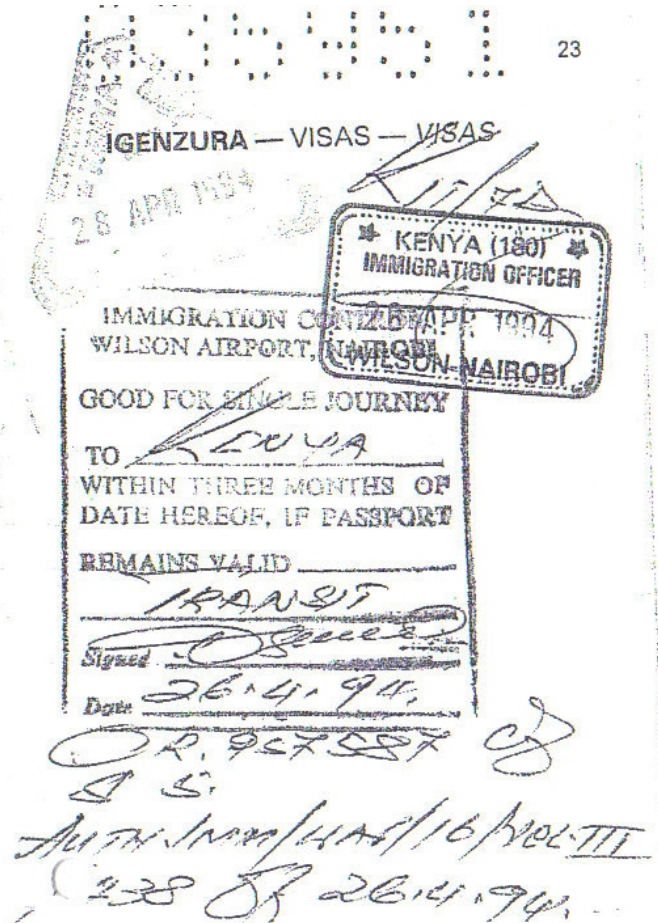 23
IGENZURA — VISAS — VISAS
28 APR 1994
KENYA (180)
IMMIGRATION OFFICER
26 APR 1994
WILSON-NAIROBI
IMMIGRATION CONTROL
WILSON AIRPORT, NAIROBI
GOOD FOR SINGLE JOURNEY
TO KENYA
WITHIN THREE MONTHS OF
DATE HEREOF, IF PASSPORT
REMAINS VALID
TRANSIT
Signed
Date 26.4.94.
OR. 957587
AUTH. IMM/ /16/VOL III
238 26.4.94.